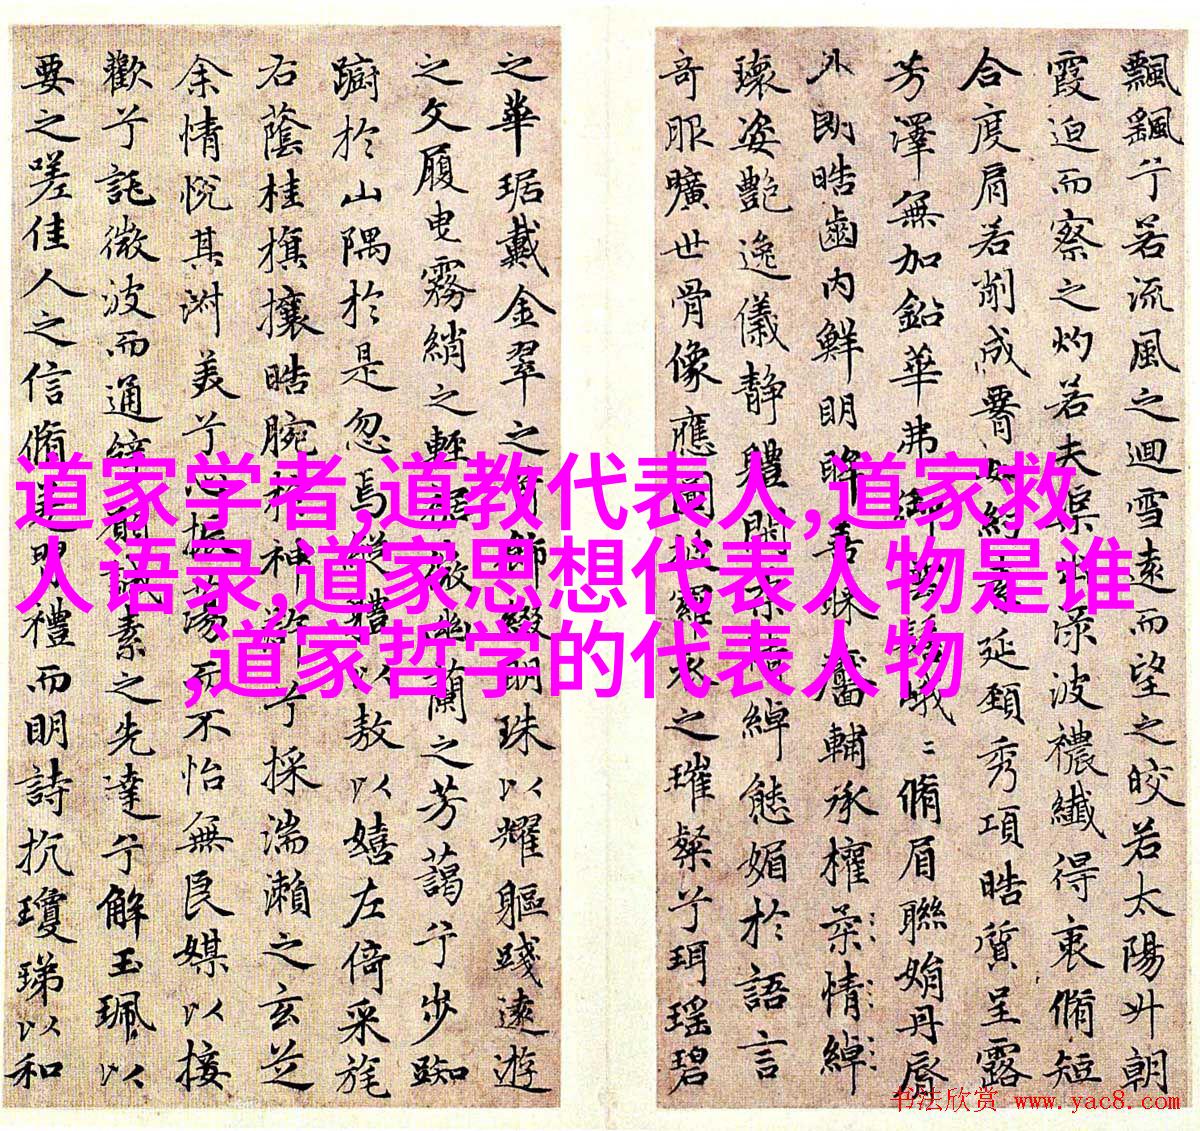 飄飖兮若流風之迴雪遠而望之皎若太陽升朝
霞迫而察之灼若夫渠出淥波襛纖得衷脩短
合度肩若削成腰如約素延頸秀項皓質呈露
芳澤無加鉛華弗御雲髻峩〻脩眉聯娟丹脣
外朗皓齒內鮮明眸善睞靨輔承權柔情綽
瓌姿艷逸儀靜體閑柔情綽態媚於語言
奇服曠世骨像應圖披羅衣之璀粲兮珥瑤碧
之華琚戴金翠之首飾綴明珠以耀軀踐遠遊
之文履曳霧綃之輕裾微幽蘭之芳藹兮步踟
躕於山隅於是忽焉縱體以敖以嬉左倚采旄
右蔭桂旗攘皓腕於神滸兮採湍瀨之玄芝
余情悅其淑美兮心振蕩而不怡無良媒以接
歡兮託微波而通辭願誠素之先達兮解玉珮以
要之嗟佳人之信脩羌習禮而明詩抗瓊珶以和
道家学者,道教代表人,道家救
人语录,道家思想代表人物是谁
,道家哲学的代表人物
书法欣赏 www.yac8.com